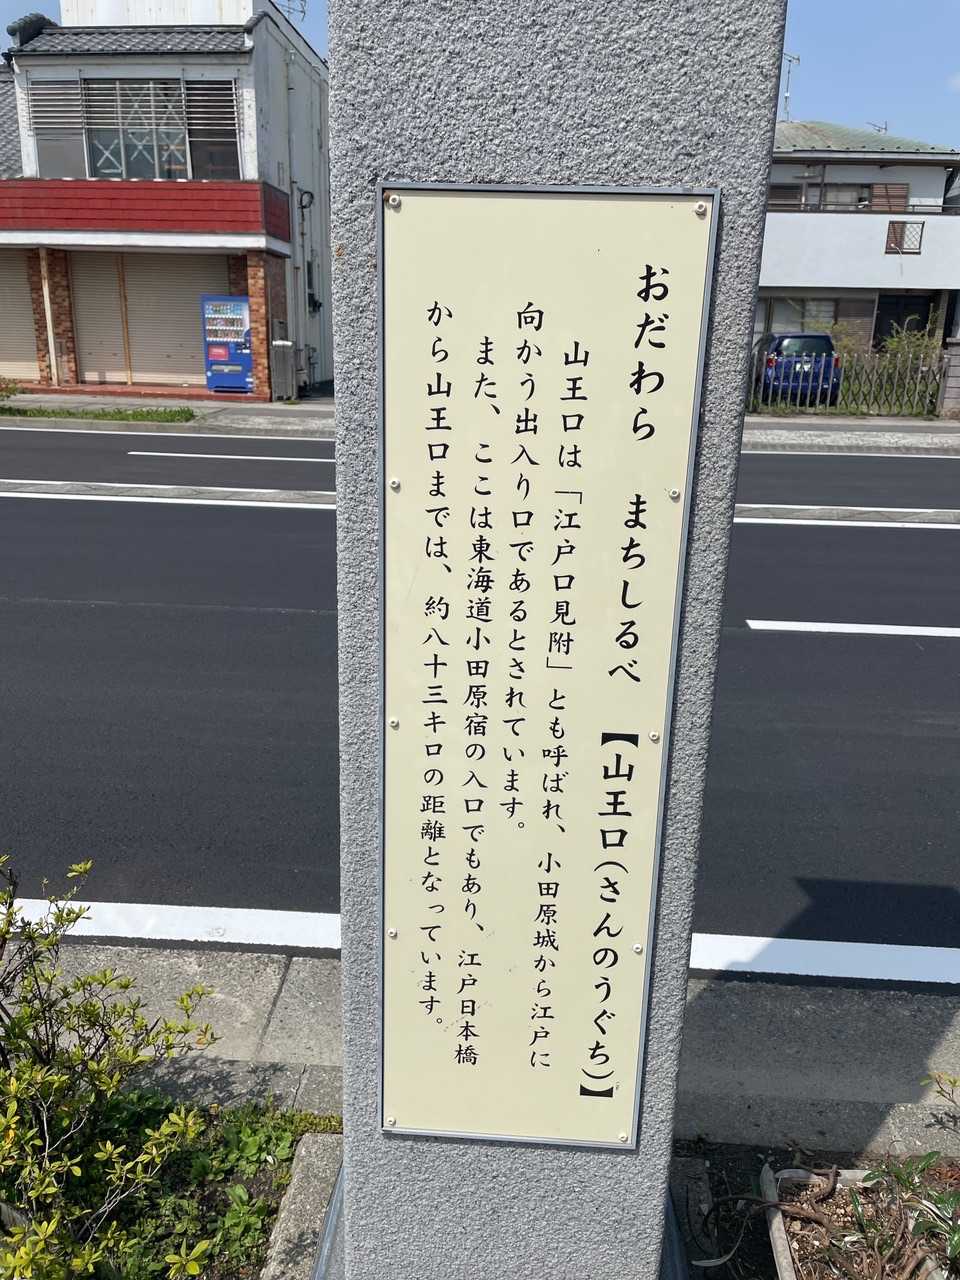 おだわら　まちしるべ　【山王口（さんのうぐち）】
山王口は「江戸口見附」とも呼ばれ、小田原城から江戸に
向かう出入り口であるとされています。
また、ここは東海道小田原宿の入口でもあり、江戸日本橋
から山王口までは、約八十三キロの距離となっています。